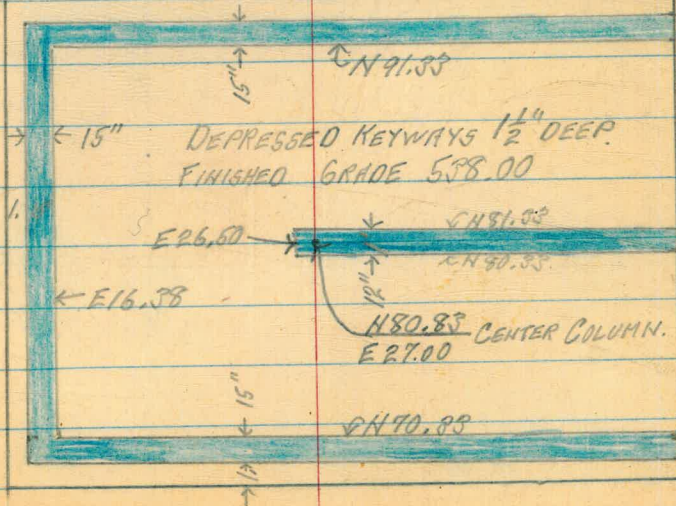 15"
N91.33
15"
DEPRESSED KEYWAYS 1 1/2" DEEP.
FINISHED GRADE 538.00
1.
N81.33
E26.50
N80.33
12"
E16.38
N80.83 CENTER COLUMN.
E27.00
15"
N70.83